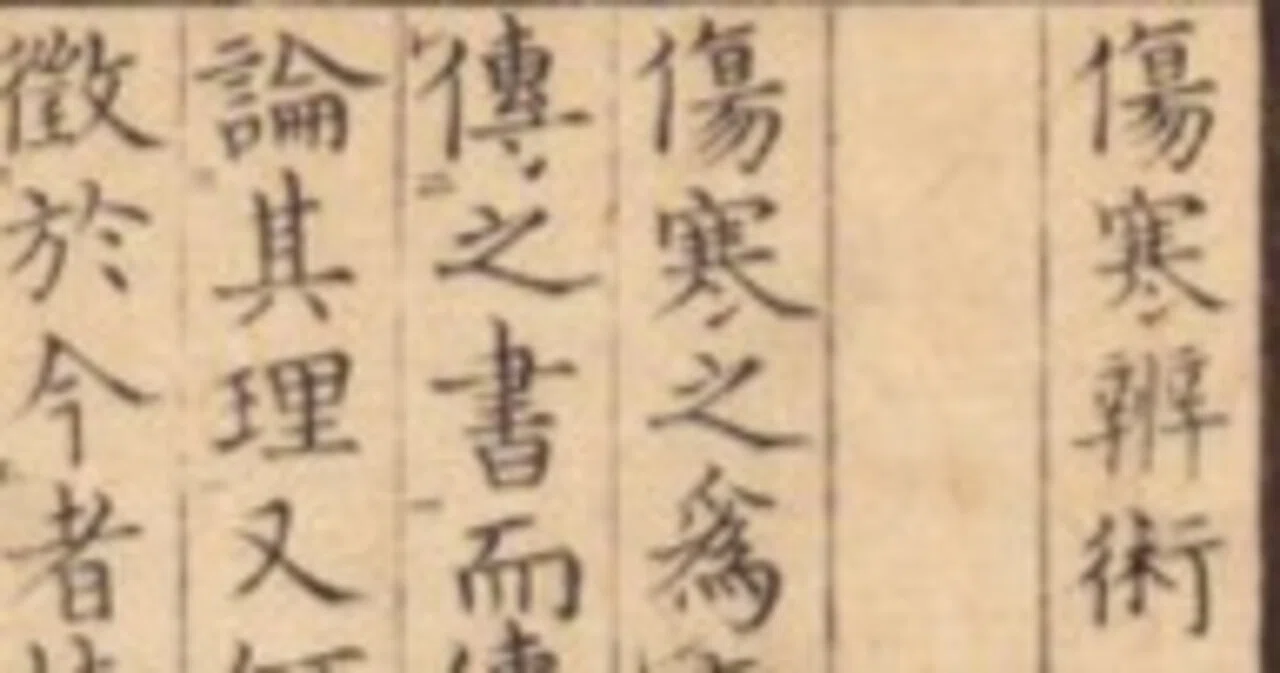 傷寒辨術
傷寒之為
傳之書而傳
論其理又
徵於今者